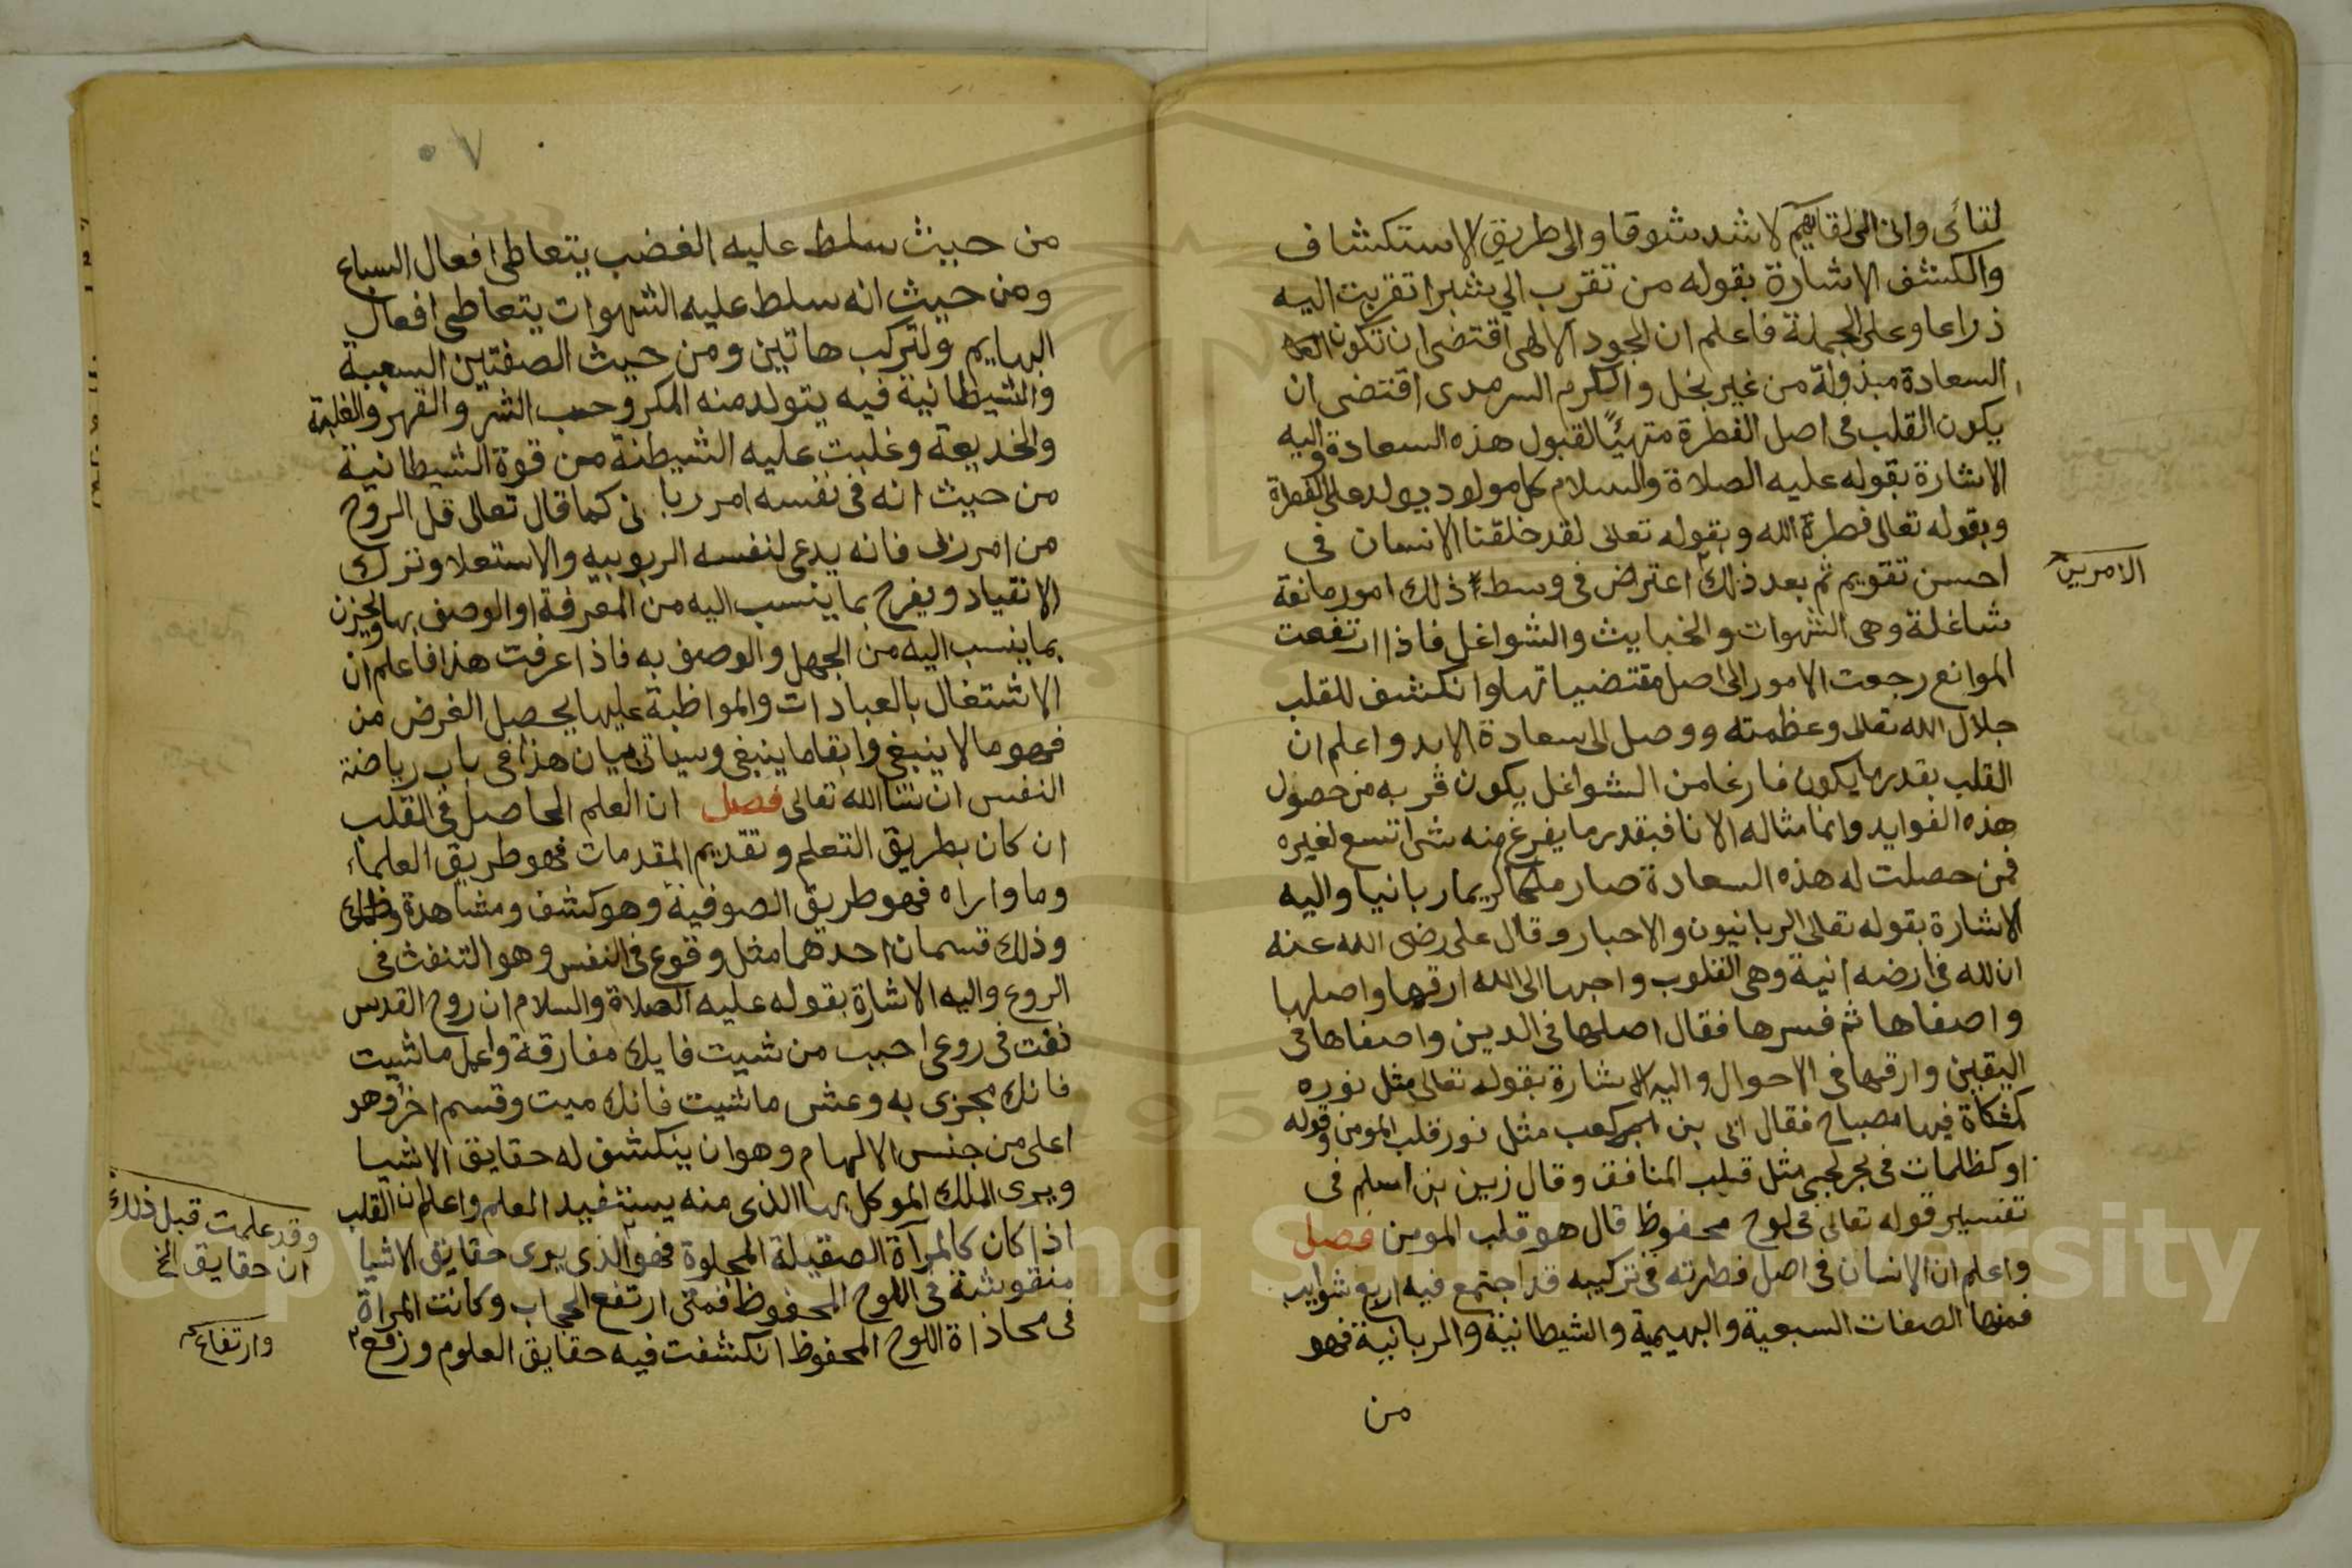 لقائى وانى الى لقايهم لاشد شوقا والى طريق الاستكشاف
والكشف الاشارة بقوله من تقرب الي شبرا تقربت اليه
ذراعا وعلى الجملة فاعلم ان الجود الالهى اقتضى ان تكون
السعادة مبذولة من غير بخل والكرم السرمدى اقتضى ان
يكون القلب فى اصل الفطرة متهيئا لقبول هذه السعادة واليه
الاشارة بقوله عليه الصلاة والسلام كل مولود يولد على الفطرة
وبقوله تعالى فطرة الله وبقوله تعالى لقد خلقنا الانسان فى
احسن تقويم ثم بعد ذلك اعتراض فى وسط ذلك امور مانعة
الامرين
شاغلة وهى الشهوات والخبايث والشواغل فاذا ارتفعت
الموانع رجعت الامور الى اصل مقتضياتها وانكشف للقلب
جلال الله تعالى وعظمته ووصل الى سعادة الابد واعلم ان
القلب بقدر ما يكون فارغا من الشواغل يكون قربه من حصول
هذه الفوايد وانما مثاله الانا فبقدر ما يفرغ منه شئ اتسع لغيره
فمن حصلت له هذه السعادة صار ملكا كريما ربانيا واليه
الاشارة بقوله تعالى الربانيون والاحبار وقال على رضى الله عنه
ان لله فى ارضه انية وهى القلوب واحبها الى الله ارقها واصلبها
واصفاها ثم فسرها فقال اصلبها فى الدين واصفاها فى
اليقين وارقها فى الاحوال واليه الاشارة بقوله تعالى مثل نوره
كمشكاة فيها مصباح فقال ابى بن كعب مثل نور قلب المومن وقوله
او كظلمات فى بحر لجى مثل قلب المنافق وقال زين بن اسلم فى
تفسير قوله تعالى فى لوح محفوظ قال هو قلب المومن فصل
واعلم ان الانسان فى اصل فطرته فى تركيبه قد اجتمع فيه اربع شوايب
فمنها الصفات السبعية والبهيمية والشيطانية والربانية فهو
من
٧٠
من حيث سلط عليه الغضب يتعاطى افعال السباع
ومن حيث انه سلط عليه الشهوات يتعاطى افعال
البهايم ولتركب هاتين ومن حيث الصفتين السبعية
والشيطانية فيه يتولد منه المكر وحب الشر والقهر والغلبة
والخديعة وغلبت عليه الشيطنة من قوة الشيطانية
من حيث انه فى نفسه امر ربا نى كما قال تعالى قل الروح
من امر ربى فانه يدعى لنفسه الربوبيه والاستعلا وترك
الانقياد ويفرح بما ينسب اليه من المعرفة او الوصف بها ويحزن
بما ينسب اليه من الجهل والوصف به فاذا عرفت هذا فاعلم ان
الاشتغال بالعبادات والمواظبة عليها يحصل الغرض من
فهو ما لا ينبغي وابقا ما ينبغى وسياتى بيان هذا فى باب رياضة
النفس ان شا الله تعالى فصل ان العلم الحاصل فى القلب
ان كان بطريق التعلم وتقديم المقدمات فهو طريق العلماء
وما وراه فهو طريق الصوفية وهو كشف ومشاهدة
وذلك قسمان احدهما مثل وقوع فى النفس وهو التنفث فى
الروع واليه الاشاة بقوله عليه الصلاة والسلام ان روح القدس
نفث فى روعى احبب من شيت فايك مفارقة واعمل ما شيت
فانك مجزى به وعش ما شيت فانك ميت وقسم اخر وهو
اعلى من جنس الالهام وهو ان ينكشف له حقايق الاشيا
ويرى الملك الموكل بها الذى منه يستفيد العلم واعلم ان القلب
وقد علمت قبل ذلك
ان حقايق الخ
اذا كان كالمرآة الصقيلة المجلوة فهو الذى يرى حقايق الاشيا
منقوشة فى اللوح المحفوظ فمتى ارتفع الحجاب وكانت المراة
فى محاذاة اللوح المحفوظ انكشفت فيه حقايق العلوم ورفع
وارتفاع